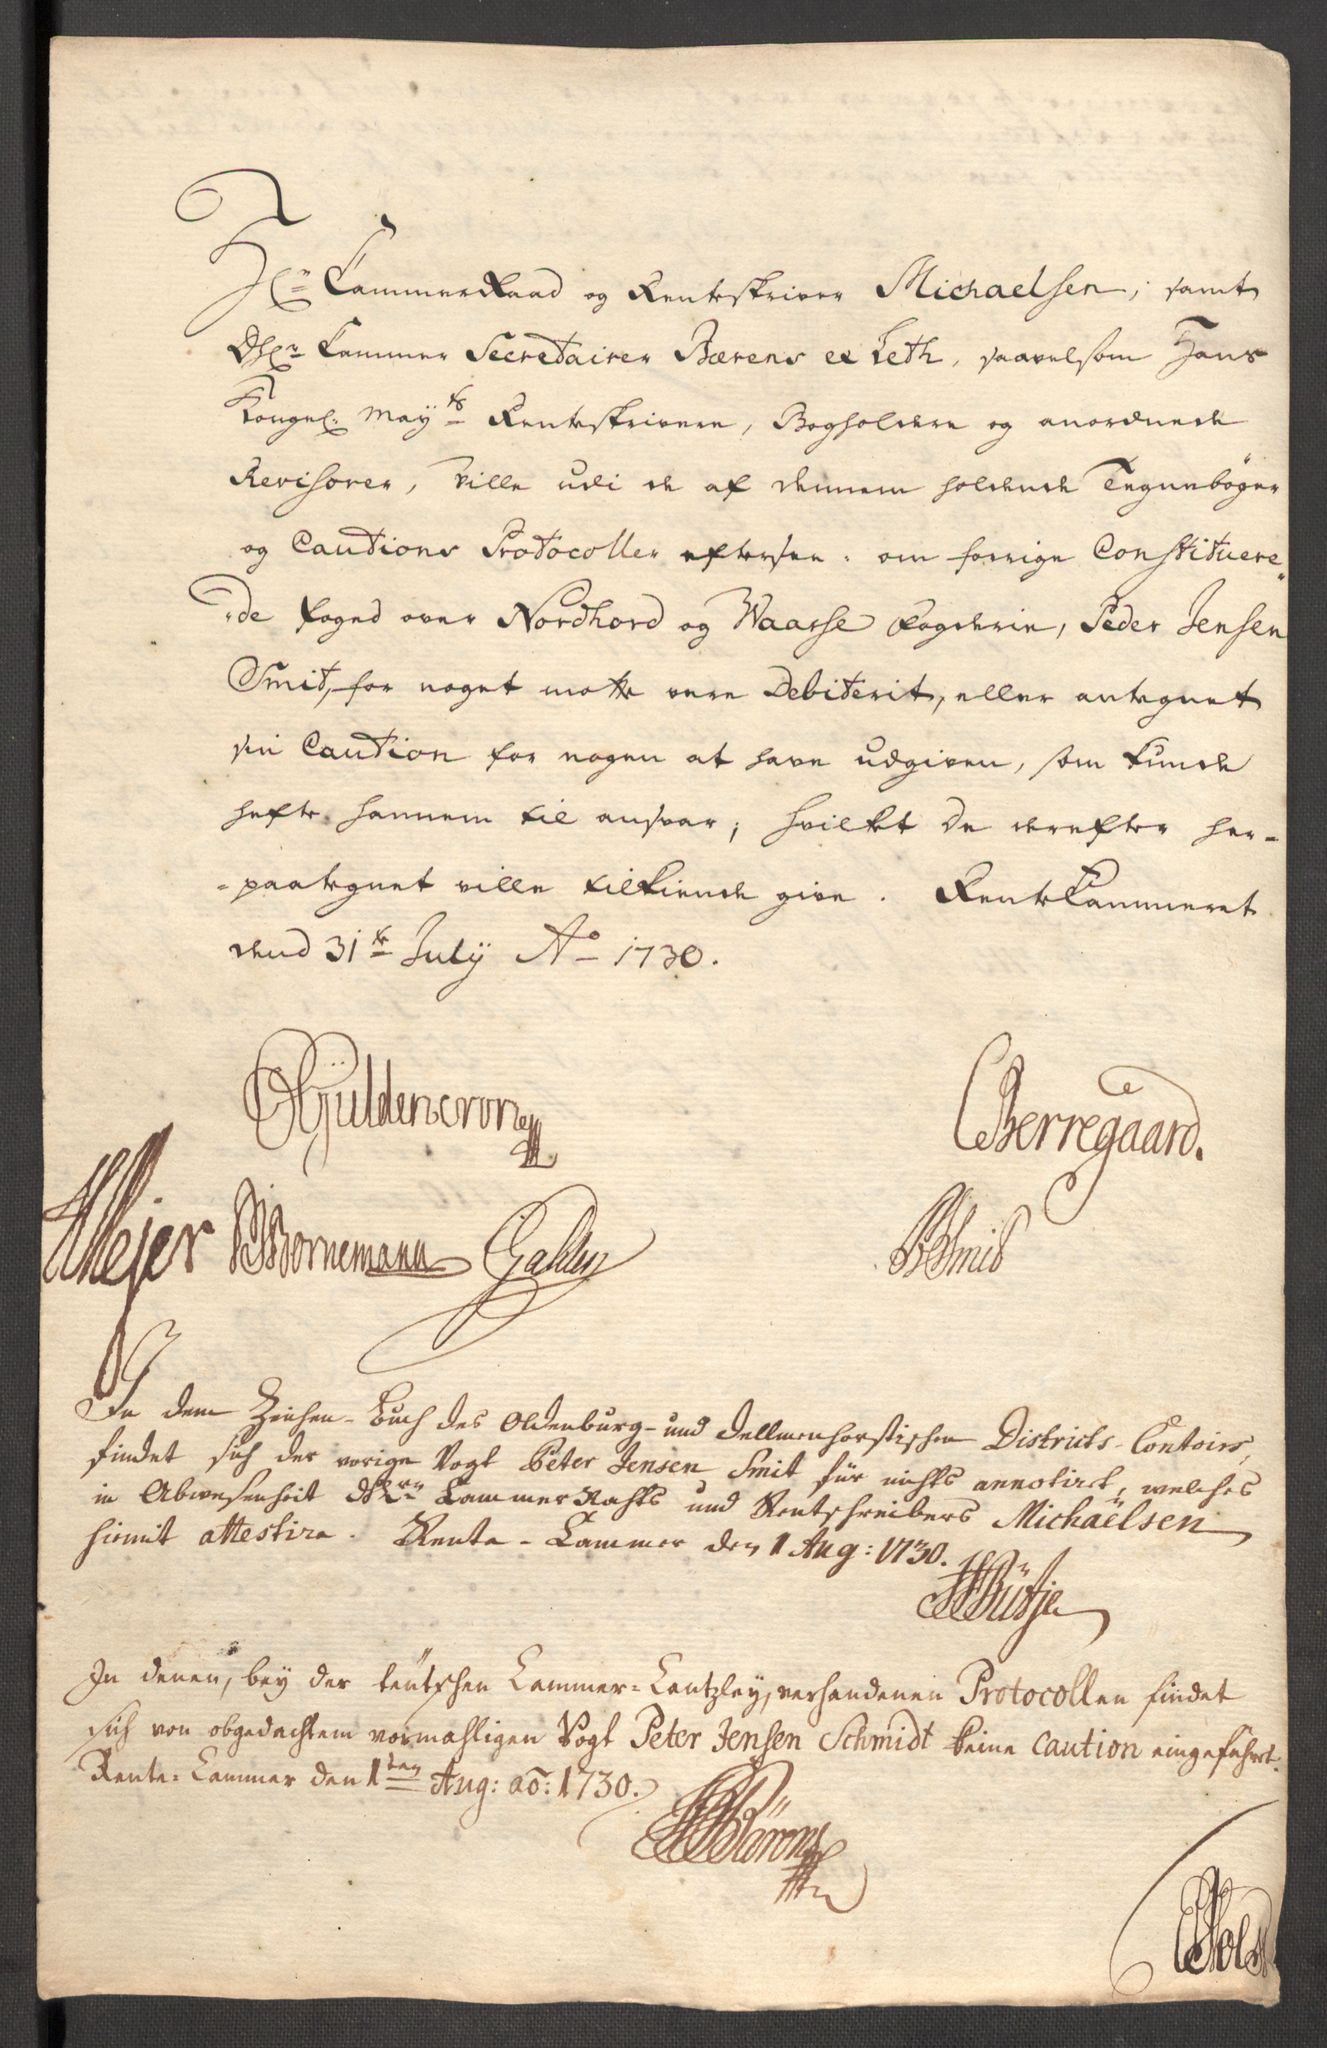 Hr. CammerRaad og Renteskriver Michaelsen, samt
Dhrr. Cammer Secretairer Bærens et Leth, saavelsom Hans
Kongel: Mayts Renteskrivere, Bogholdere og anordnede
Revisorer, ville udi de af dennem holdende Tegnebøger
og Cautions Protocoller eftersee, om forrige Constituere-
-de Foged over Nordhord og Waasse Fogderie, Peder Jensen
Smit, for noget motte være Debiterit, eller antegnet
sin Caution for nogen at have udgiven, som kunde
hefte hannem til ansvar; hvilket De derefter her-
-paategnet ville tilkiende give. RenteCammeret
dend 31te July Ao 1730.
Güldencrone
CBerregaard.
Mejer Bornemann Galten
BSmid
In dem Zeichen-Buch des Oldenburg- und Dellmenhorstischen Districts-Contoirs,
findet sich der vorige Vogt Peter Jensen Smit für nichts annotiret, welches
in Abwesenheit des Hrn CammerRahts und Rentschreibers Michaëlsen
hiemit attestire. Rente-Cammer den 1 Aug: 1730.
In denen, bey der teütschen Cammer-Cantzley, verhandenen Protocollen findet
sich von obgedachtem vormahligen Vogt Peter Jensen Schmidt keine caution eingeführt.
Rente-Cammer den 1ten Aug: ao: 1730.
Bärens
Holst